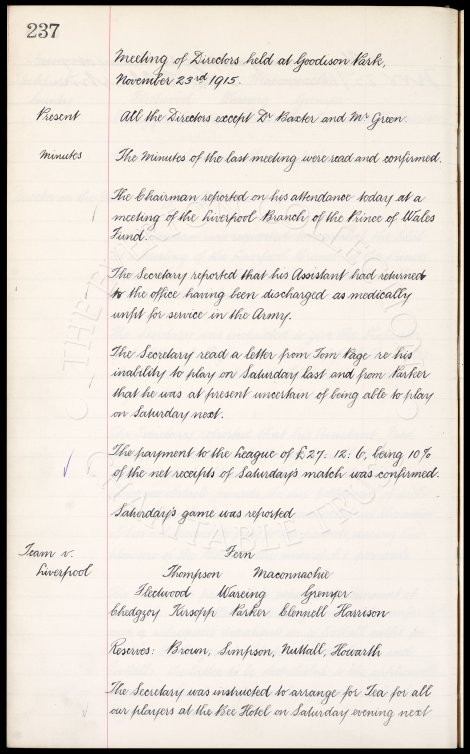 237
Meeting of Directors held at Goodison Park,
November 23rd 1915.
Present All the Directors except Dr Baxter and Mr Green.
Minutes The Minutes of the last meeting were read and confirmed.
The Chairman reported on his attendance today at a
meeting of the Liverpool Branch of the Prince of Wales
Fund.
The Secretary reported that his Assistant had returned
to the office having been discharged as medically
unfit for service in the Army.
The Secretary read a letter from Tom Page re his
inability to play on Saturday last and from Parker
that he was at present uncertain of being able to play
on Saturday next.
The payment to the League of £27. 12. 6, being 10%
of the net receipts of Saturday's match was confirmed.
Saturday's game was reported
Team v. Fern
Liverpool Thompson Maconnachie
Fleetwood Wareing Grenyer
Chedgzoy Kirsopp Parker Clennell Harrison
Reserves: Brown, Simpson, Nuttall, Howarth
The Secretary was instructed to arrange for Tea for all
our players at the Bee Hotel on Saturday evening next
THE EVERTON COLLECTION
CHARITABLE TRUST